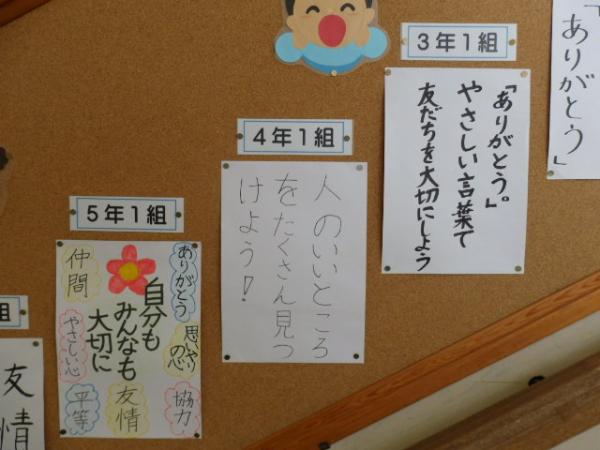 「ありがとう」
3年1組
「ありがとう。」
やさしい言葉で
友だちを大切にしよう
4年1組
人のいいところ
をたくさん見つ
けよう!
5年1組
ありがとう
思いやりの心
協力
自分も
みんなも
大切に
友情
仲間
やさしい心
平等
組
友情